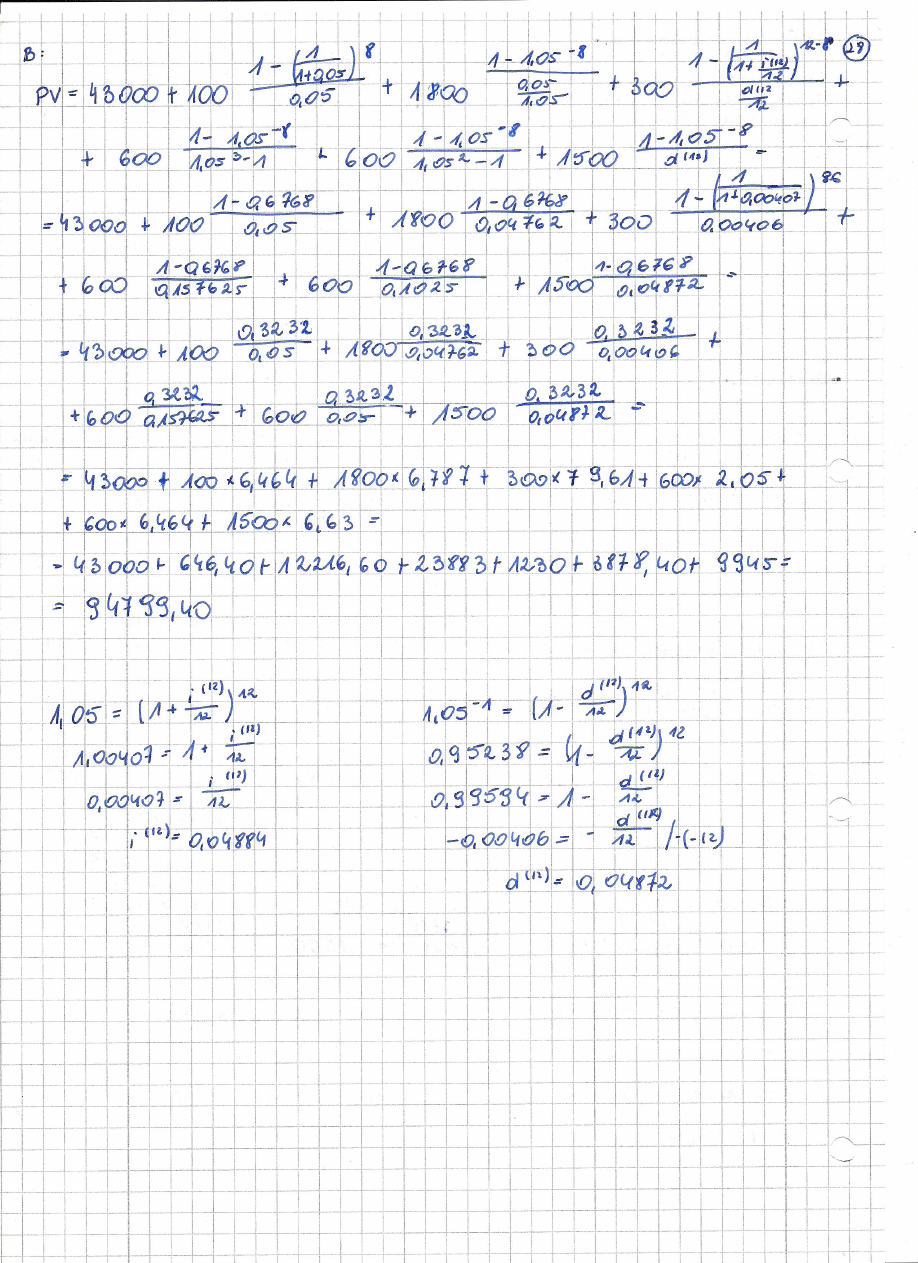 B: (28)
PV = 43000 + 100 \frac{1-(\frac{1}{1+0,05})^8}{0,05} + 1800 \frac{1-1,05^{-8}}{\frac{0,05}{1,05}} + 300 \frac{1-(\frac{1}{1+\frac{i^{(12)}}{12}})^{12·8}}{\frac{d^{(12}}{12}} +
+ 600 \frac{1-1,05^{-8}}{1,05^3-1} + 600 \frac{1-1,05^{-8}}{1,05^2-1} + 1500 \frac{1-1,05^{-8}}{d^{(12)}} =
= 43000 + 100 \frac{1-0,6768}{0,05} + 1800 \frac{1-0,6768}{0,04762} + 300 \frac{1-(\frac{1}{1+0,00407})^{86}}{0,00406} +
+ 600 \frac{1-0,6768}{0,157625} + 600 \frac{1-0,6768}{0,1025} + 1500 \frac{1-0,6768}{0,04872} =
= 43000 + 100 \frac{0,3232}{0,05} + 1800 \frac{0,3232}{0,04762} + 300 \frac{0,3232}{0,00406} +
+ 600 \frac{0,3232}{0,157625} + 600 \frac{0,3232}{0,05} + 1500 \frac{0,3232}{0,04872} =
= 43000 + 100 × 6,464 + 1800 × 6,787 + 300 × 79,61 + 600 × 2,05 +
+ 600 × 6,464 + 1500 × 6,63 =
= 43000 + 646,40 + 12216,60 + 23883 + 1230 + 3878,40 + 9945 =
= 94799,40
1,05 = (1 + \frac{i^{(12)}}{12})^{12}
1,00407 = 1 + \frac{i^{(12)}}{12}
0,00407 = \frac{i^{(12)}}{12}
i^{(12)} = 0,04884
1,05^{-1} = (1 - \frac{d^{(12)}}{12})^{12}
0,95238 = (1 - \frac{d^{(12)}}{12})^{12}
0,99594 = 1 - \frac{d^{(12)}}{12}
-0,00406 = - \frac{d^{(12)}}{12} /·(-12)
d^{(12)} = 0,04872